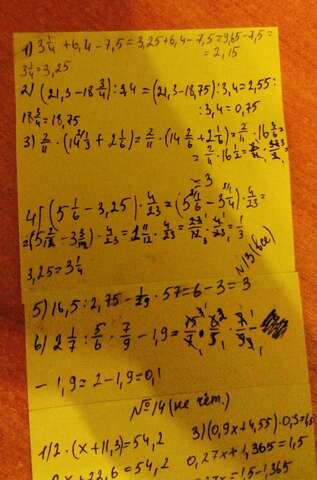 1) 3 1/4 + 6,4 - 7,5 = 3,25 + 6,4 - 7,5 = 9,65 - 7,5 =
= 2,15
3 1/4 = 3,25
2) (21,3 - 18 3/4) : 3,4 = (21,3 - 18,75) : 3,4 = 2,55 :
18 3/4 = 18,75
: 3,4 = 0,75
3) 2/11 · (14 1/3 + 2 1/6) = 2/11 · (14 2/6 + 2 1/6) = 2/11 · 16 3/6 =
= 2/11 · 16 1/2 =
= 3
4) (5 1/6 - 3,25) · 4/23 = (5 1/6 - 3 1/4) · 4/23 =
= (5 2/12 - 3 3/12) · 4/23 = 1 11/12 · 4/23 = 23/12 · 4/23 = 1/3
3,25 = 3 1/4
№13 (все)
5) 16,5 : 2,75 - 1/19 · 57 = 6 - 3 = 3
6) 2 1/7 : 5/6 · 7/9 - 1,9 = 15/7 · 6/5 · 7/9
- 1,9 = 2 - 1,9 = 0,1
№14 (не чёт.)
1) 2 · (x + 11,3) = 54,2
3) (0,9x + 4,55) · 0,3 =
2x + 22,6 = 54,2
0,27x + 1,365 = 1,5
= 1,5 - 1,365